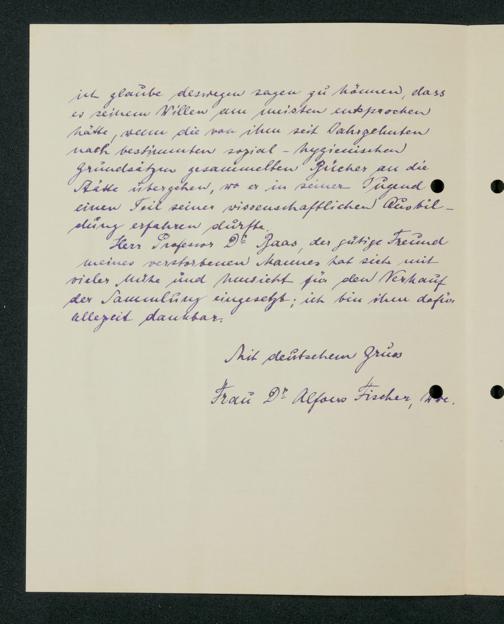 ich glaube deswegen sagen zu können, dass
es seinem Willen am meisten entsprochen
hätte, wenn die von ihm seit Jahrzehnten
nach bestimmten sozial-hygienischen
Grundsätzen gesammelten Bücher an die
Stätte übergehen, wo er in seiner Jugend
einen Teil seiner wissenschaftlichen Ausbil-
dung erfahren durfte.
Herr Professor Dr. Baas, der gütige Freund
meines verstorbenen Mannes hat sich mit
vieler Mühe und Umsicht für den Verkauf
der Sammlung eingesetzt; ich bin ihm dafür
allezeit dankbar.
Mit deutschem Gruss
Frau Dr. Alfons Fischer, Wwe.